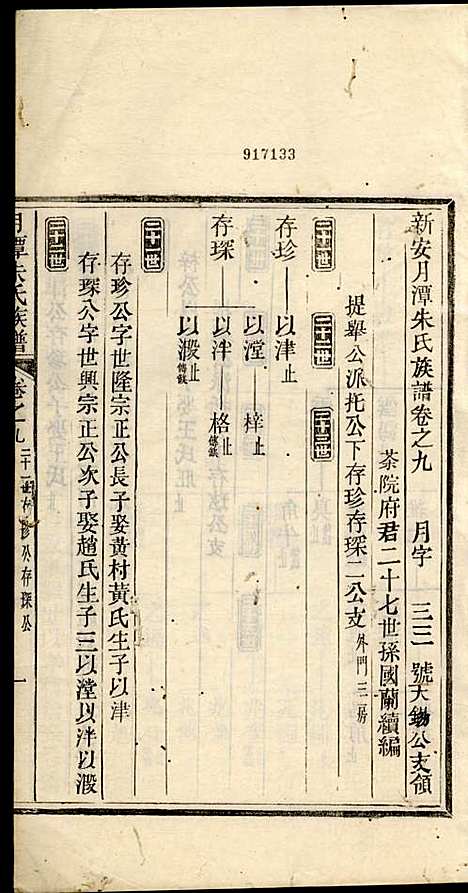 917133
新安月潭朱氏族譜卷之九 月字 三三 號大錫公支領
茶院府君二十七世孫國蘭續編
提舉公派托公下存珍存琛二公支 外門三二房
二十一世 二十二世 二十三世
存珍 以津止
存琛 以瀅 梓止
以泮 格傳缺
以瀫止傳缺
二十一世
存珍公字世隆宗正公長子娶黃村黃氏生子以津
存琛公字世興宗正公次子娶趙氏生子三以瀅以泮以瀫
二十二世
月潭朱氏族譜 卷之九 二十一世存珍公存琛公 一